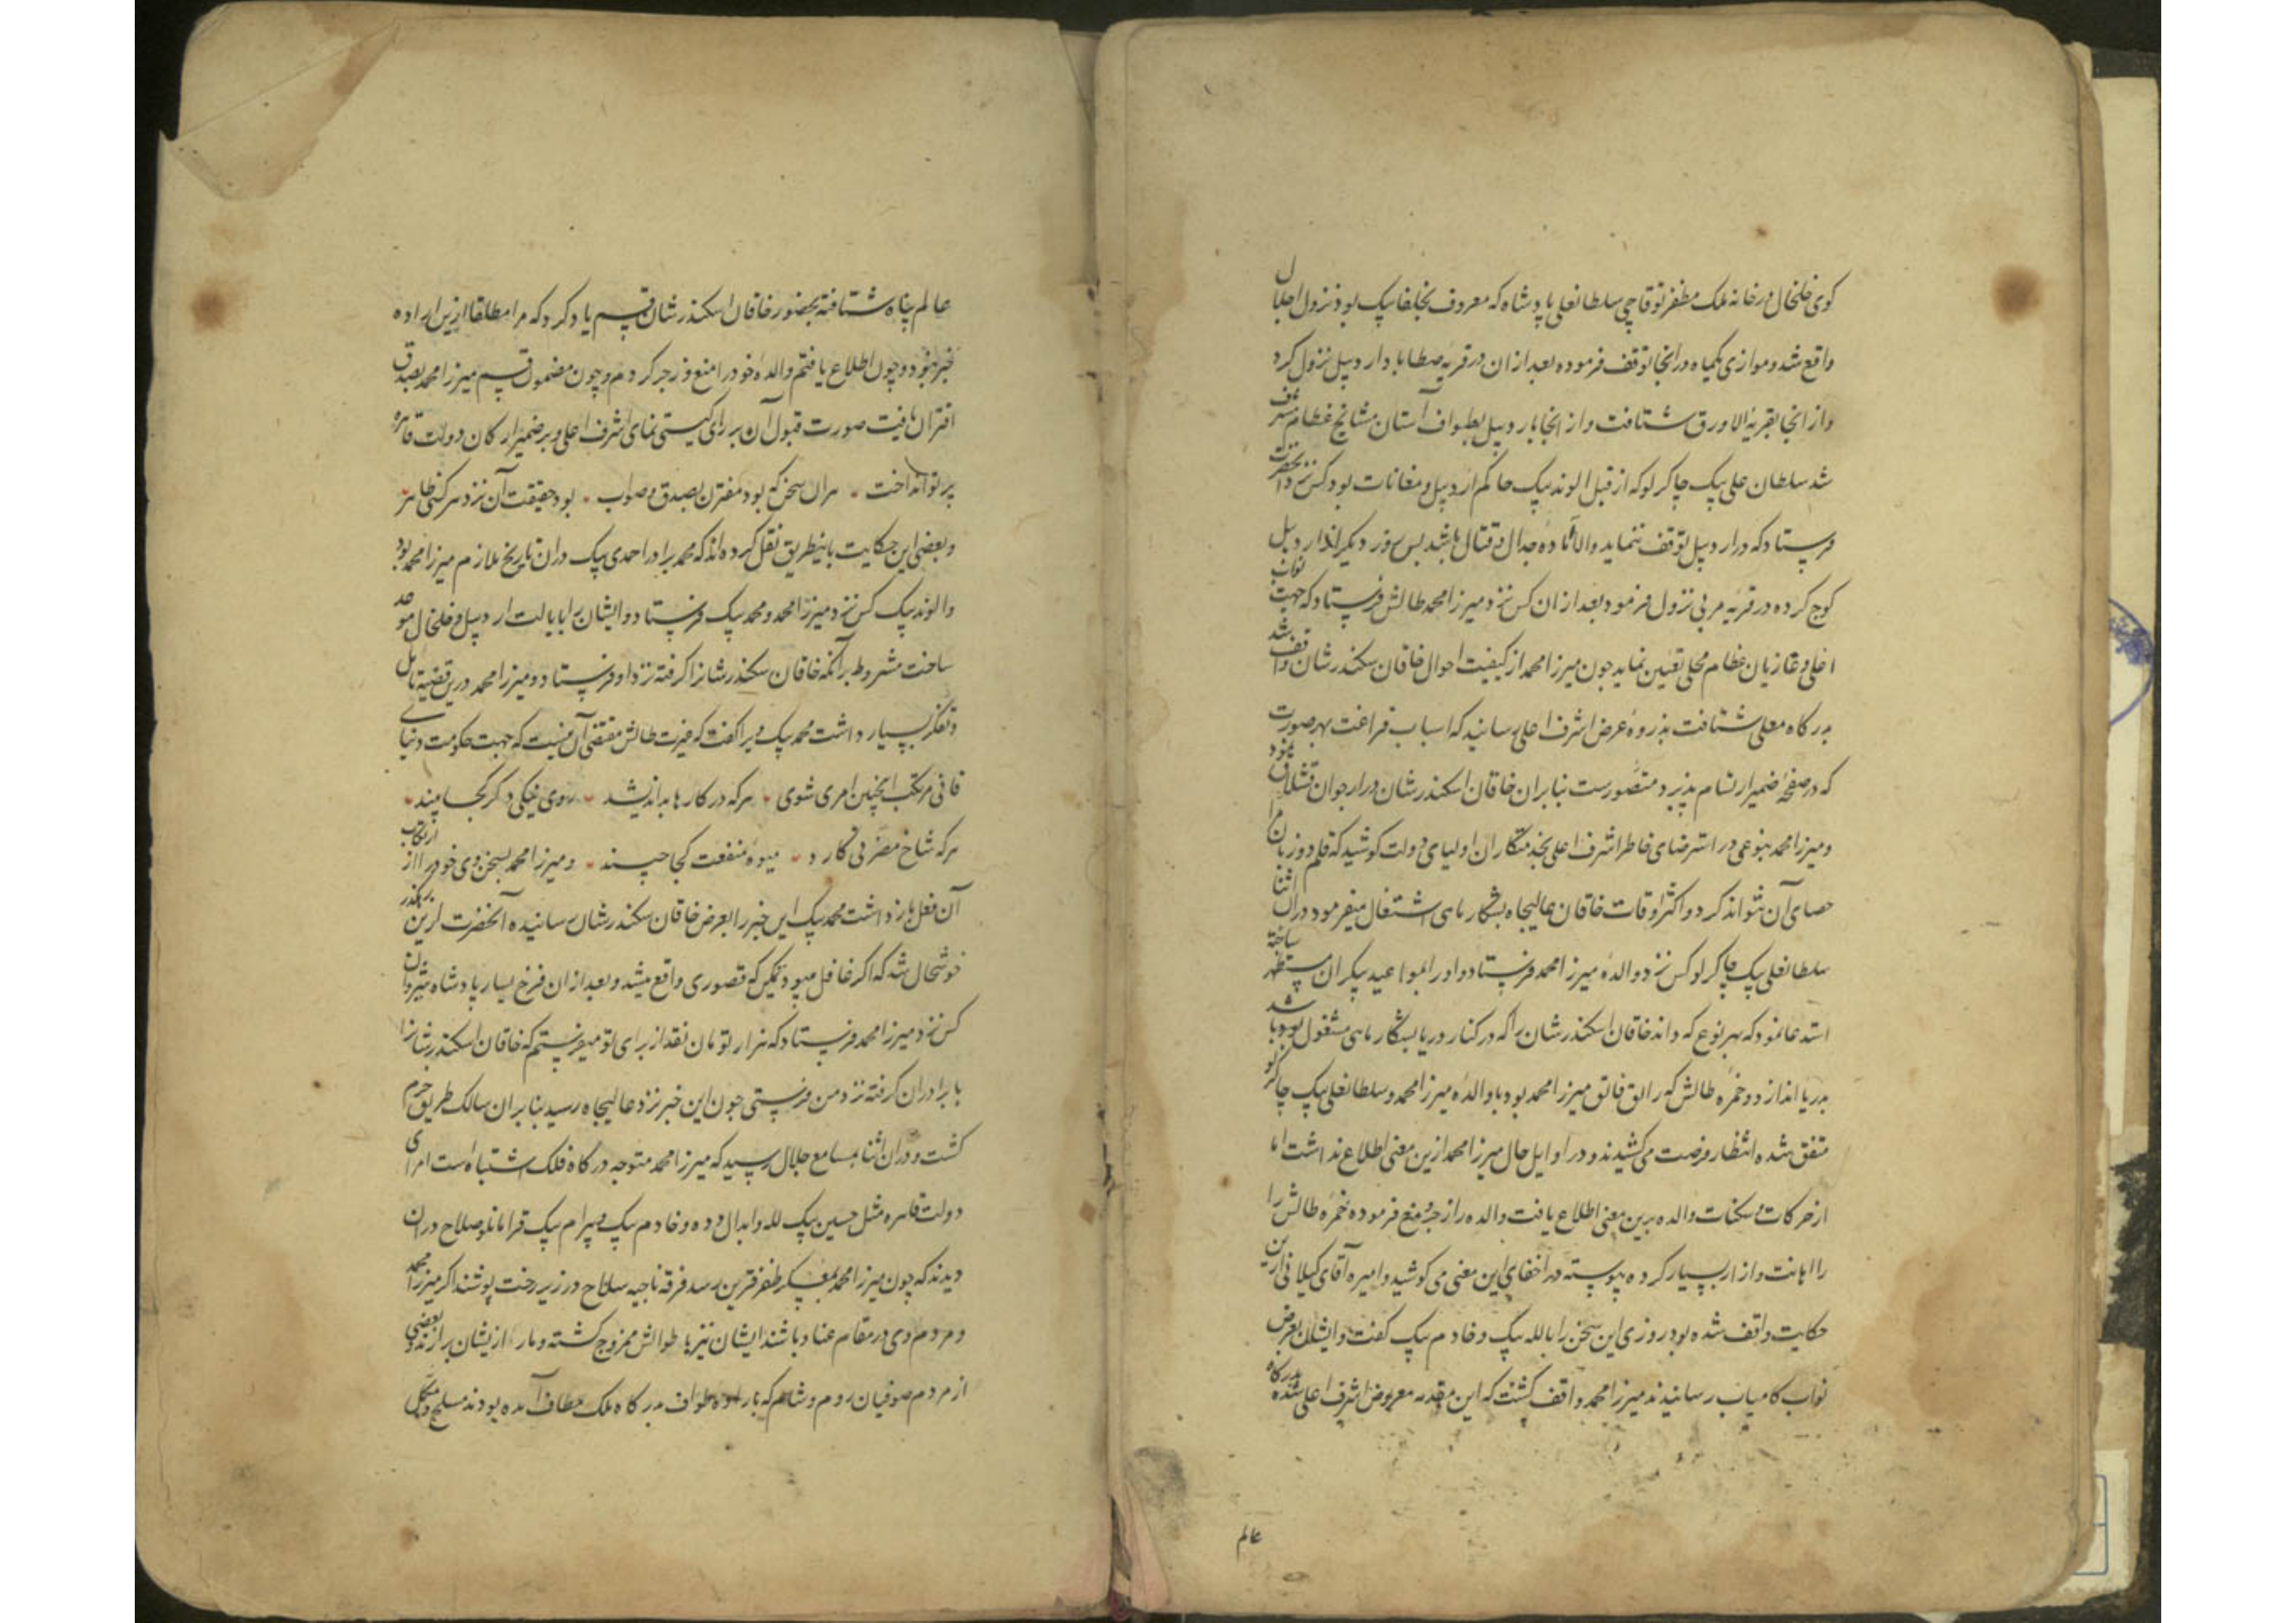 کوی خلخال در خانه ملک مظفر توقاچی سلطانعلی پادشاه که معروف بخلفا بیک بود نزول اجلال
واقع شد و موازی یکماه در انجا توقف فرموده بعد از ان در قریه حطاباد اردبیل نزول کرد
و از انجا بقریه الاورق شتافت و از انجا باردبیل بطواف آستان مشایخ عظام مشرف
شد سلطان علی بیک چاکرلو که از قبل الوند بیک حاکم اردبیل و مغانات بود کس نزد انحضرت
فرستاد که در اردبیل توقف ننماید والا آماده جدال و قتال باشد پس روز دیگر از اردبیل
کوچ کرده در قریه مرنی نزول فرمود بعد از ان کس نزد میرزا محمد طالش فرستاد که جهت نواب
اعلی و غازیان عظام محلی تعیین نماید چون میرزا محمد از کیفیت احوال خاقان سکندر شان واقف شد
بدرکاه معلی شتافت بذروه عرض اشرف اعلی رسانید که اسباب فراغت بهر صورت
که در صفحه ضمیر ارتسام پذیرد متصورست بنابران خاقان اسکندر شان در ارجوان قشلاق نمود
و میرزا محمد بنوعی در استرضای خاطر اشرف اعلی بخدمتکاران اولیای دولت کوشید که قلم دو زبان
احصای آن نتواند کرد و اکثر اوقات خاقان عالیجاه بشکار ماهی اشتغال میفرمود در ان اثنا
سلطانعلی بیک چاکرلو کس نزد والده میرزا محمد فرستاد و او را بمواعید بیکران مستظهر ساخته
استدعا نمود که بهر نوع که داند خاقان اسکندر شان را که در کنار دریا بشکار ماهی مشغول بود باشد
بدریا اندازد و خمره طالش که راتق فاتق میرزا محمد بود با والده میرزا محمد و سلطانعلی بیک چاکرلو
متفق شده انتظار فرصت می کشیدند و در اوایل حال میرزا محمد ازین معنی اطلاع نداشت اما
از حرکات و سکنات والده برین معنی اطلاع یافت والده را زجر و منع فرموده خمره طالش را
را اهانت و ازار بسیار کرده پیوسته در اخفای این معنی می کوشید و امیره آقای کیلانی ازین
حکایت واقف شده بود روزی این سخن را با لله بیک و خادم بیک کفت و ایشان بعرض
نواب کامیاب رسانیدند میرزا محمد واقف کشت که این مقدمه معروض اشرف اعلی شده بدرکاه
عالم
عالم پناه شتافته بحضور خاقان اسکندر شان قسم یاد کرد که مرا مطلقا ازین اراده
خبر نبود و چون اطلاع یافتم والده خود را منع و زجر کردم و چون مضمون قسم میرزا محمد بصدق
اقتران یافت صورت قبول آن بر رای کیتی نمای اشرف اعلی و بر ضمیر ارکان دولت قاهره
پرتو انداخت هر ان سخن که بود مقترن بصدق و صواب بود حقیقت آن نزد هر کسی ظاهر
و بعضی این حکایت باینطریق نقل کرده اند که محمد برادر احمدی بیک در ان تاریخ ملازم میرزا محمد بود
و الوند بیک کس نزد میرزا محمد و محمد بیک فرستاد و ایشان را بایالت اردبیل و خلخال موعد
ساخت مشروط بر آنکه خاقان سکندر شانرا کرفته نزد او فرستاد و میرزا محمد درین قضیه تامل
و تفکر بسیار داشت محمد بیک ویرا کفت که غیرت طالش مقتضی آن نیست که جهت حکومت دنیای
فانی مرتکب اینچنین امری شوی هر که در کار ها بد اندیشد روی نیکی دکر کجا بیند
هر که شاخ مضرتی کارد میوه منفعت کجا چیند و میرزا محمد بسخن وی خود را از ارتکاب
آن فعل باز داشت محمد بیک این خبر را بعرض خاقان سکندر شان رسانیده آنحضرت ازین رهکذر
خوشحال شد که اکر غافل میبود ممکن که قصوری واقع میشد و بعد از ان فرخ یسار پادشاه شروان
کس نزد میرزا محمد فرستاد که هزار تومان نقد از برای تو میفرستم که خاقان اسکندر شانرا
با برادران کرفته نزد من فرستی چون این خبر نزد عالیجاه رسید بنابران سالک طریق حزم
کشت و در ان اثنا بمسامع جلال رسید که میرزا محمد متوجه درکاه فلک اشتباه است امرای
دولت قاهره مثل حسین بیک لله و ابدال دده و خادم بیک و بیرام بیک قرامانلو صلاح در ان
دیدند که چون میرزا محمد بمعسکر ظفر قرین رسد فرقه ناجیه سلاح در زیر رخت پوشند اکر میرزا محمد
و مردم وی در مقام عناد باشند ایشان نیز با طوالش ممزوج کشته و مار از یشان برارند و بعضی
از مردم صوفیان روم و شام که باراده طواف درکاه ملک مطاف آمده بودند مسلح و مکمل